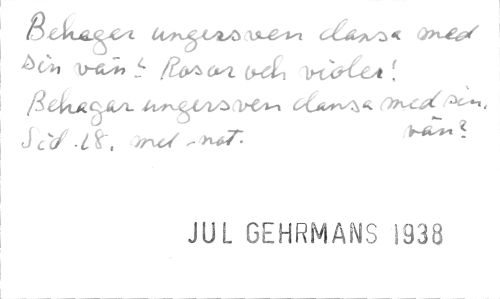 Behagar ungersven dansa med
sin vän? Rosor och violer!
Behagar ungersven dansa med sin
vän?
Sid. 18. mel-not.
JUL GEHRMANS 1938